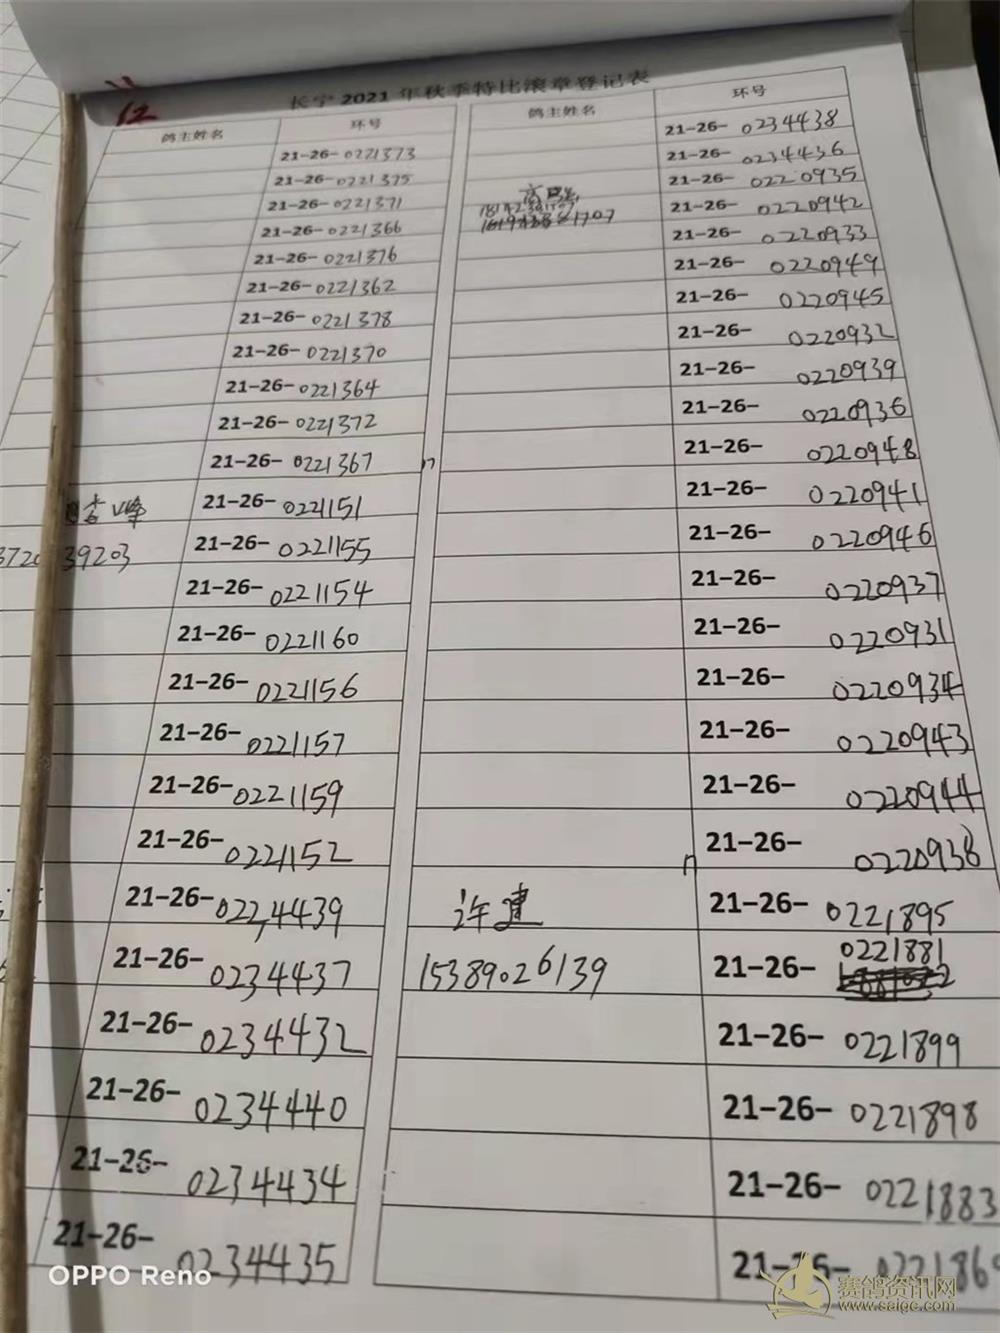 12
长宁2021年秋季特比滚章登记表
鸽主姓名 环号
21-26-0221373
21-26-0221375
21-26-0221371
21-26-0221366
21-26-0221376
21-26-0221362
21-26-0221378
21-26-0221370
21-26-0221364
21-26-0221372
21-26-0221367
峰 21-26-0221151
39203 21-26-0221155
21-26-0221154
21-26-0221160
21-26-0221156
21-26-0221157
21-26-0221159
21-26-0221152
21-26-0224439
21-26-0234437
21-26-0234432
21-26-0234440
21-26-0234434
21-26-0234435
鸽主姓名 环号
21-26-0234438
21-26-0234436
21-26-0220935
21-26-0220942
21-26-0220933
21-26-0220949
21-26-0220945
21-26-0220932
21-26-0220939
21-26-0220936
21-26-0220948
21-26-0220941
21-26-0220946
21-26-0220937
21-26-0220931
21-26-0220934
21-26-0220943
21-26-0220944
21-26-0220938
许建 21-26-0221895
15389026139 21-26-0221881
21-26-0221899
21-26-0221898
21-26-0221883
21-26-022186
OPPO Reno
赛鸽资讯网
www.saige.com